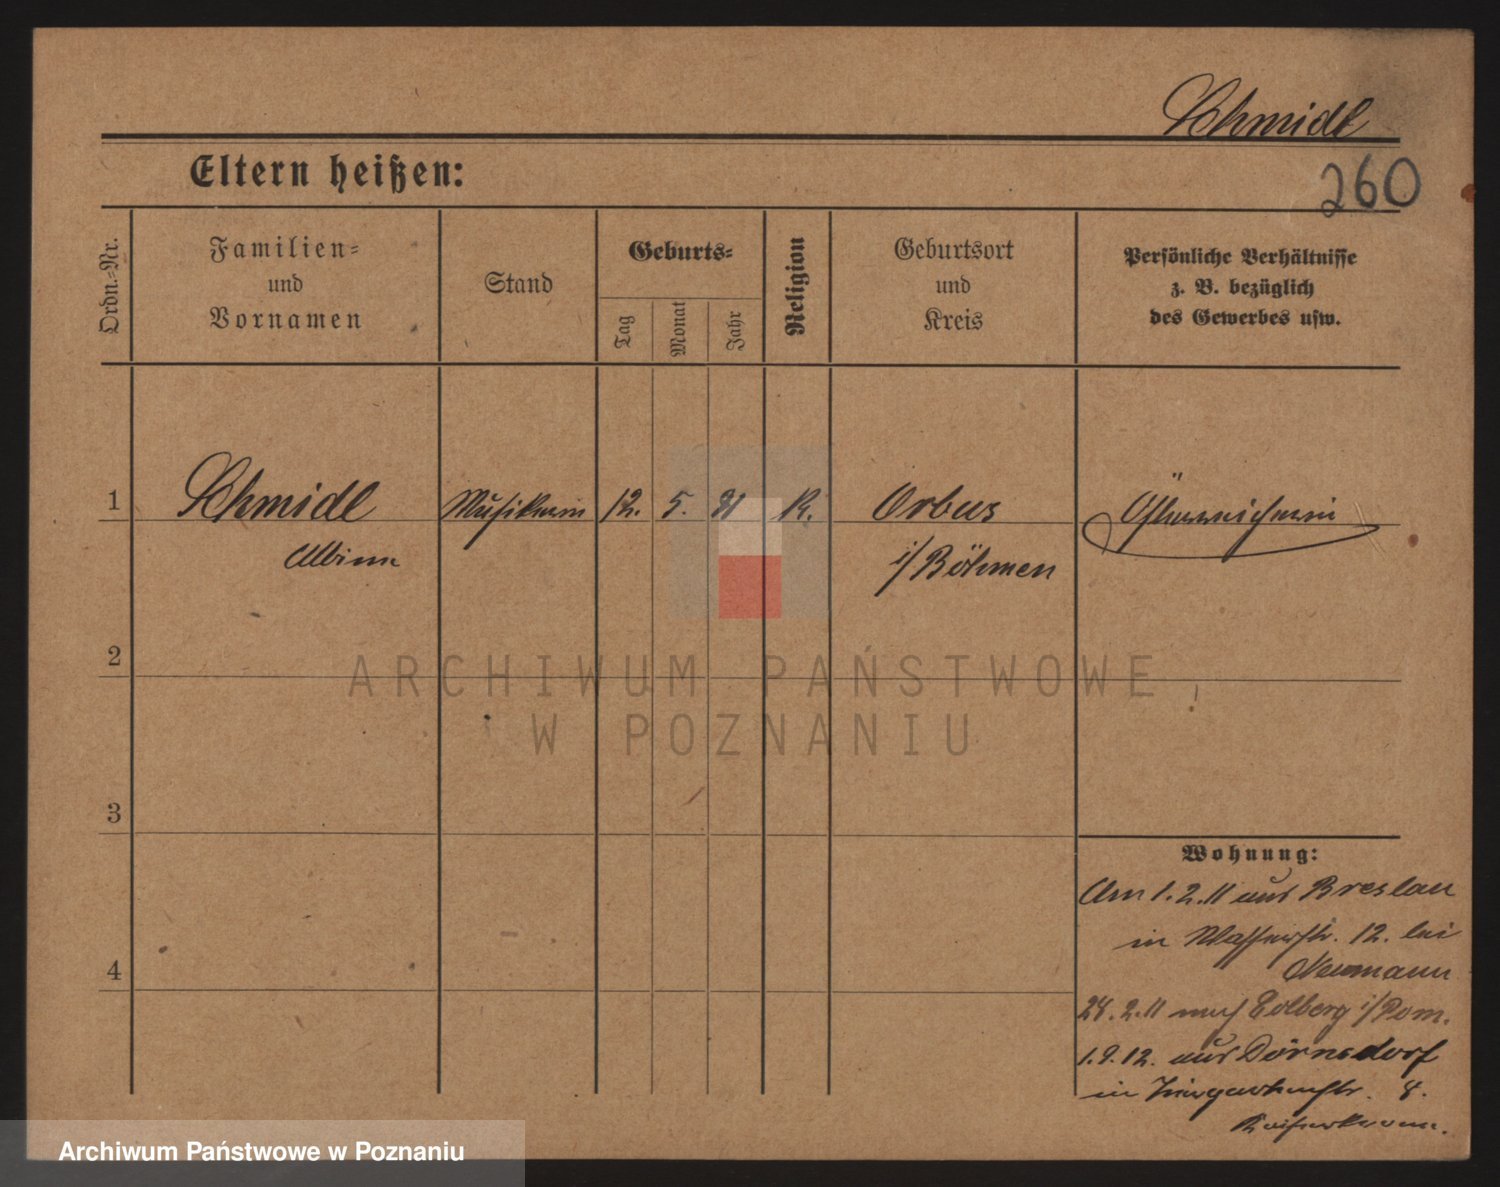 Schmidl
Eltern heißen:
260
Ordn.-Nr.
Familien-
und
Vornamen
Stand
Geburts-
Tag
Monat
Jahr
Religion
Geburtsort
und
Kreis
Persönliche Verhältnisse
z. B. bezüglich
des Gewerbes usw.
1 Schmidl Musikerin 12. 5. 91 K. Orbus Österreicherin
Albine
i/Böhmen
2
ARCHIWUM PAŃSTWOWE
W POZNANIU
3
Wohnung:
Am 1.2.11 aus Breslau
in Wasserstr. 12. bei
Neumann
4
28.2.11 nach Colberg i/Pom.
1.9.12. aus Dörnsdorf
in Tiergartenstr. 8.
Kaiserkrone.
Archiwum Państwowe w Poznaniu